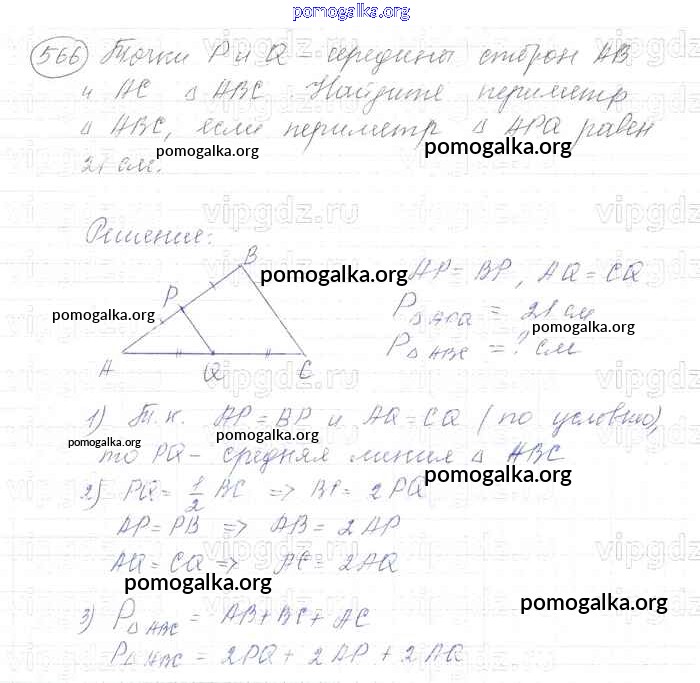 pomogalka.org
566 Точки P и Q - середины сторон AB
и AC △ ABC. Найдите периметр
△ ABC, если периметр △ APQ равен
pomogalka.org
pomogalka.org
21 см.
vipgdz.ru
vipgdz.ru
Решение:
B
pomogalka.org
AP = BP, AQ = CQ
P
pomogalka.org
P△APQ = 21 см
pomogalka.org
P△ABC = ? см
A Q C
vipgdz.ru
vipgdz.ru
1) Т.к. AP = BP и AQ = CQ (по условию),
pomogalka.org
pomogalka.org
то PQ - средняя линия △ ABC
pomogalka.org
2) PQ = 1/2 BC => BP = 2PQ
AP = PB => AB = 2AP
vipgdz.ru
vipgdz.ru
AQ = CQ => AC = 2AQ
pomogalka.org
pomogalka.org
3) P△ABC = AB + BC + AC
P△ABC = 2PQ + 2AP + 2AQ